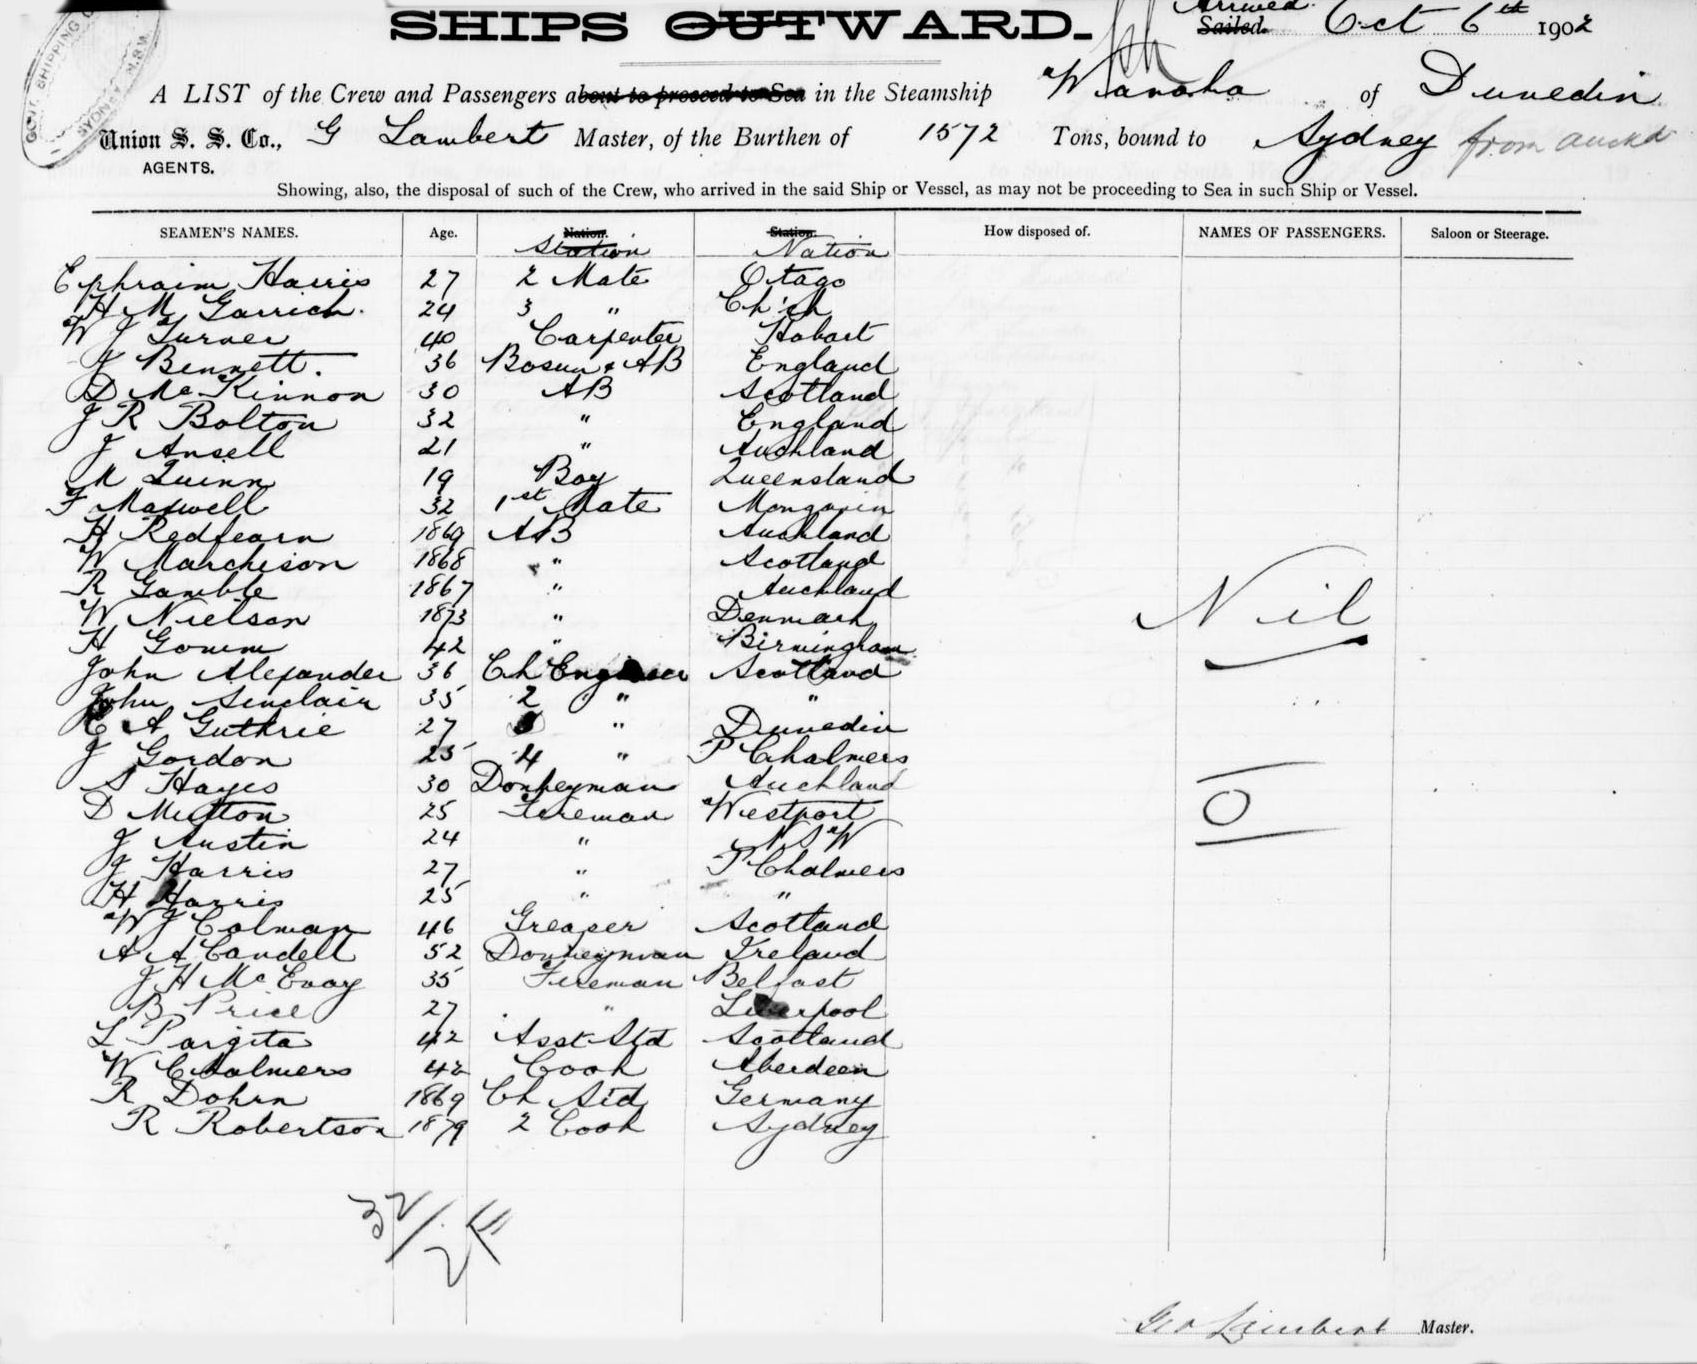 GOVT. SHIPPING
SYDNEY N.S.W.
SHIPS OUTWARD.
Arrived
Sailed. Oct 6th 1902
A LIST of the Crew and Passengers about to proceed to Sea in the Steamship Wanaka of Dunedin
Union S. S. Co., G Lambert Master, of the Burthen of 1572 Tons, bound to Sydney from Auckd
AGENTS.
Showing, also, the disposal of such of the Crew, who arrived in the said Ship or Vessel, as may not be proceeding to Sea in such Ship or Vessel.
SEAMEN'S NAMES. Age. Nation. Station. How disposed of. NAMES OF PASSENGERS. Saloon or Steerage.
Station Nation
Ephraim Harris 27 2 Mate Otago
H M Garrick. 24 3 " Ch'ch
W J Turner 40 Carpenter Hobart
J Bennett. 36 Bosun & AB England
D McKinnon 30 AB Scotland
J R Bolton 32 " England
J Ansell 21 " Auckland
M Quinn 19 Boy Queensland
F Maxwell 32 1st Mate Mongonin
H Redfearn 1869 AB Auckland
W Marchison 1868 " Scotland
R Gamble 1867 " Auckland
W Nielson 1873 " Denmark
H Gomm 42 " Birmingham
Nil
John Alexander 36 Ch Engineer Scotland
John Sinclair 35 2 " "
E A Guthrie 27 " Dunedin
J Gordon 25 4 " P Chalmers
S Hayes 30 Donkeyman Auckland
0
D Mutton 25 Fireman Westport
J Austin 24 " N S W
J Harris 27 " P Chalmers
H Harris 25 " "
W J Colman 46 Greaser Scotland
A A Candell 52 Donkeyman Ireland
J H McEvoy 35 Fireman Belfast
B Price 27 " Liverpool
L Pargita 42 Asst Std Scotland
W Chalmers 42 Cook Aberdeen
R Dohrn 1869 Ch Std Germany
R Robertson 1879 2 Cook Sydney
32/2
Geo Lambert Master.